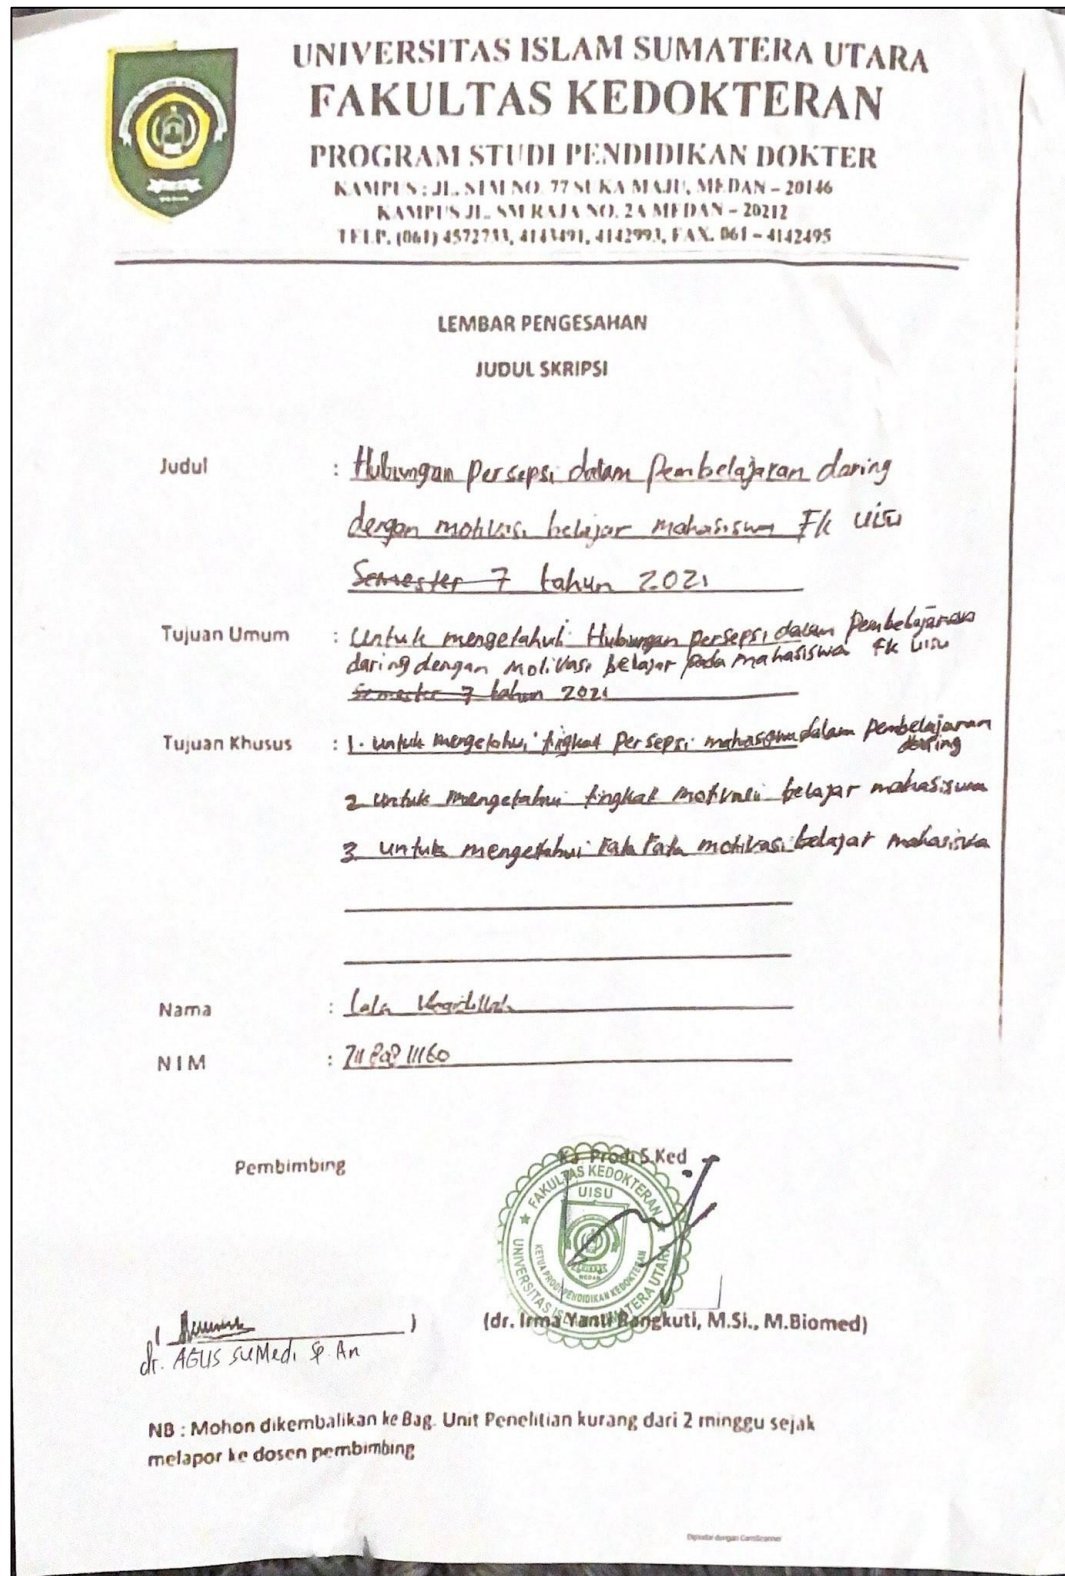 UNIVERSITAS ISLAM SUMATERA UTARA
FAKULTAS KEDOKTERAN
PROGRAM STUDI PENDIDIKAN DOKTER
KAMPUS : JL. STM NO. 77 SUKA MAJU, MEDAN – 20146
KAMPUS JL. SM RAJA NO. 2A MEDAN – 20212
TELP. (061) 4572733, 4143491, 4142993, FAX. 061 – 4142495
LEMBAR PENGESAHAN
JUDUL SKRIPSI
Judul : Hubungan Persepsi dalam Pembelajaran daring
dengan motivasi belajar mahasiswa Fk uisu
Semester 7 tahun 2021
Tujuan Umum : untuk mengetahui Hubungan persepsi dalam Pembelajaran
daring dengan motivasi belajar pada mahasiswa Fk uisu
Semester 7 tahun 2021
Tujuan Khusus : 1. untuk mengetahui tingkat Persepsi mahasiswa dalam Pembelajaran
daring
2 untuk mengetahui tingkat motivasi belajar mahasiswa
3 untuk mengetahui rata rata motivasi belajar mahasiswa
Nama : Lala
NIM :
Pembimbing
Ka Prodi S.Ked
FAKULTAS KEDOKTERAN
UISU
UNIVERSITAS ISLAM SUMATERA UTARA
KETUA PRODI PENDIDIKAN KEDOKTERAN
MEDAN
( )
(dr. Irma Yanti Rangkuti, M.Si., M.Biomed)
dr. AGUS SUMedi SP. An
NB : Mohon dikembalikan ke Bag. Unit Penelitian kurang dari 2 minggu sejak
melapor ke dosen pembimbing
Dipindai dengan CamScanner